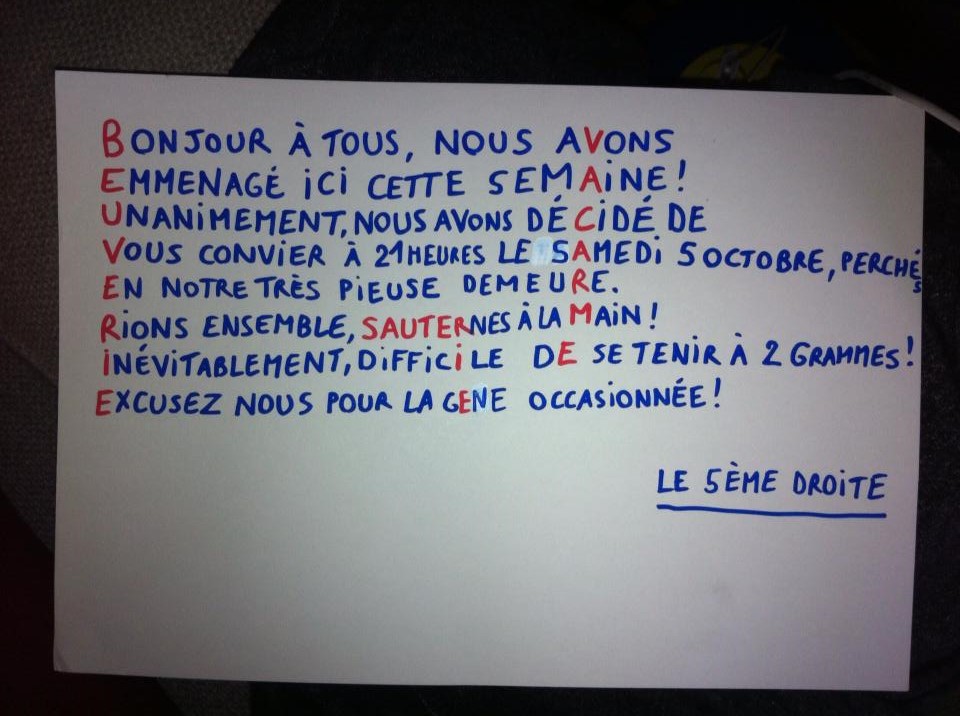 BONJOUR À TOUS, NOUS AVONS
EMMENAGÉ ICI CETTE SEMAINE!
UNANIMEMENT, NOUS AVONS DÉCIDÉ DE
VOUS CONVIER À 21HEURES LE SAMEDI 5 OCTOBRE, PERCHÉS
EN NOTRE TRÈS PIEUSE DEMEURE.
RIONS ENSEMBLE, SAUTERNES À LA MAIN!
INÉVITABLEMENT, DIFFICILE DE SE TENIR À 2 GRAMMES!
EXCUSEZ NOUS POUR LA GENE OCCASIONNÉE!
LE 5ÈME DROITE